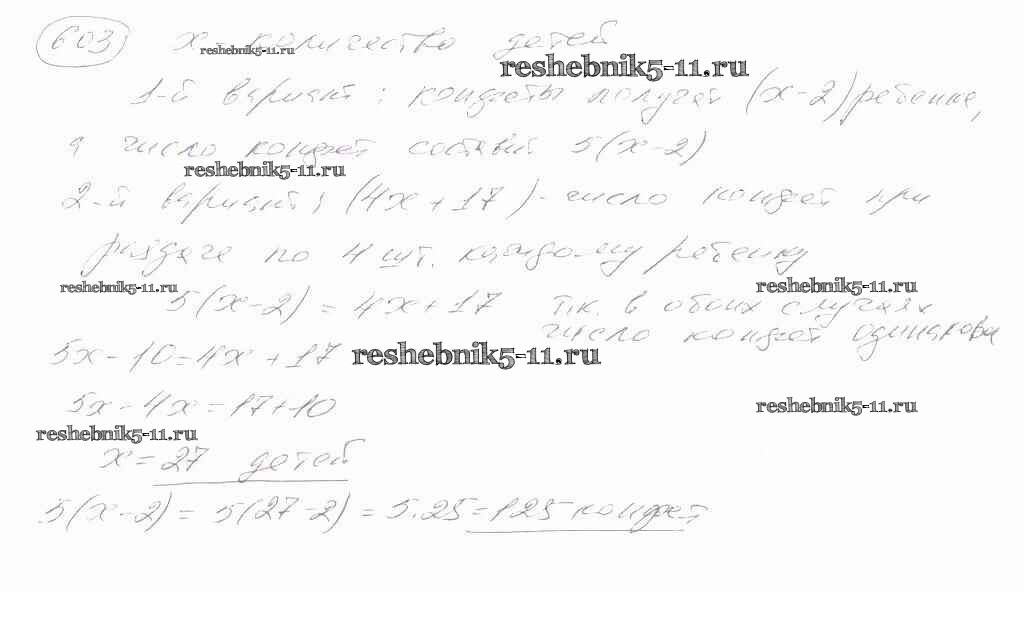 603 x - количество детей
reshebnik5-11.ru
reshebnik5-11.ru
1-й вариант: конфеты получат (x-2) ребенка,
а число конфет составит 5(x-2)
reshebnik5-11.ru
2-й вариант: (4x+17) - число конфет при
раздаче по 4 шт. каждому ребенку
reshebnik5-11.ru
reshebnik5-11.ru
5(x-2) = 4x+17 т.к. в обоих случаях
число конфет одинаково
5x-10=4x+17
reshebnik5-11.ru
5x-4x=17+10
reshebnik5-11.ru
reshebnik5-11.ru
x=27 детей
5(x-2) = 5(27-2) = 5·25=125 конфет